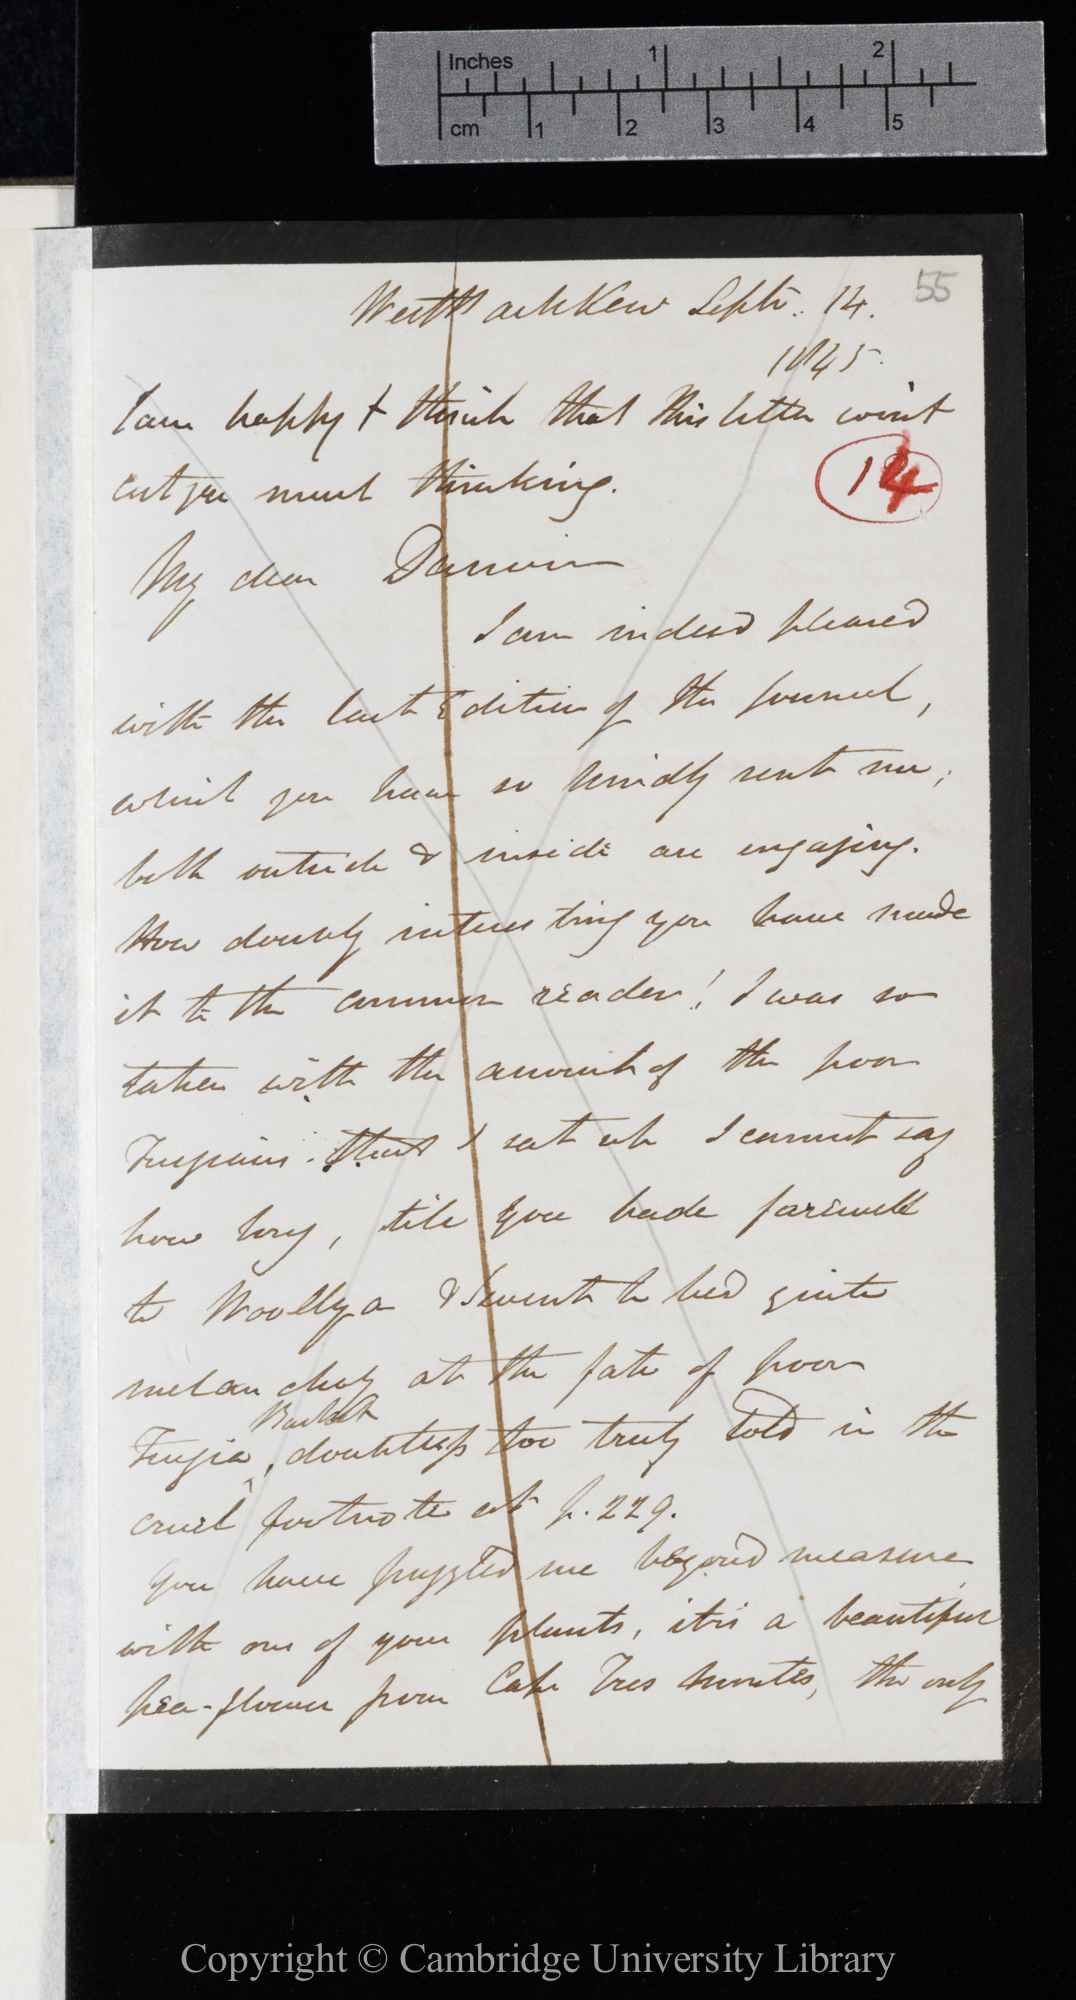 Inches 1 2
cm 1 2 3 4 5
55
West Park Kew Septr. 14.
1845.
I am happy to think that this letter won't
cost you much thinking.
14
My dear Darwin
I am indeed pleased
with the last Edition of the Journal,
which you have so kindly sent me;
both outside & inside are engaging.
How doubly interesting you have made
it to the common reader! I was so
taken with the account of the poor
Fuegians that I sat up I cannot say
how long, till you bade farewell
to Woollya & I went to bed quite
melancholy at the fate of poor
Basket
Fuegia, doubtless too truly told in the
cruel footnote at p. 229.
You have puzzled me beyond measure
with one of your plants, it is a beautiful
pea-flower from Cape Tres Montes, the only
Copyright © Cambridge University Library